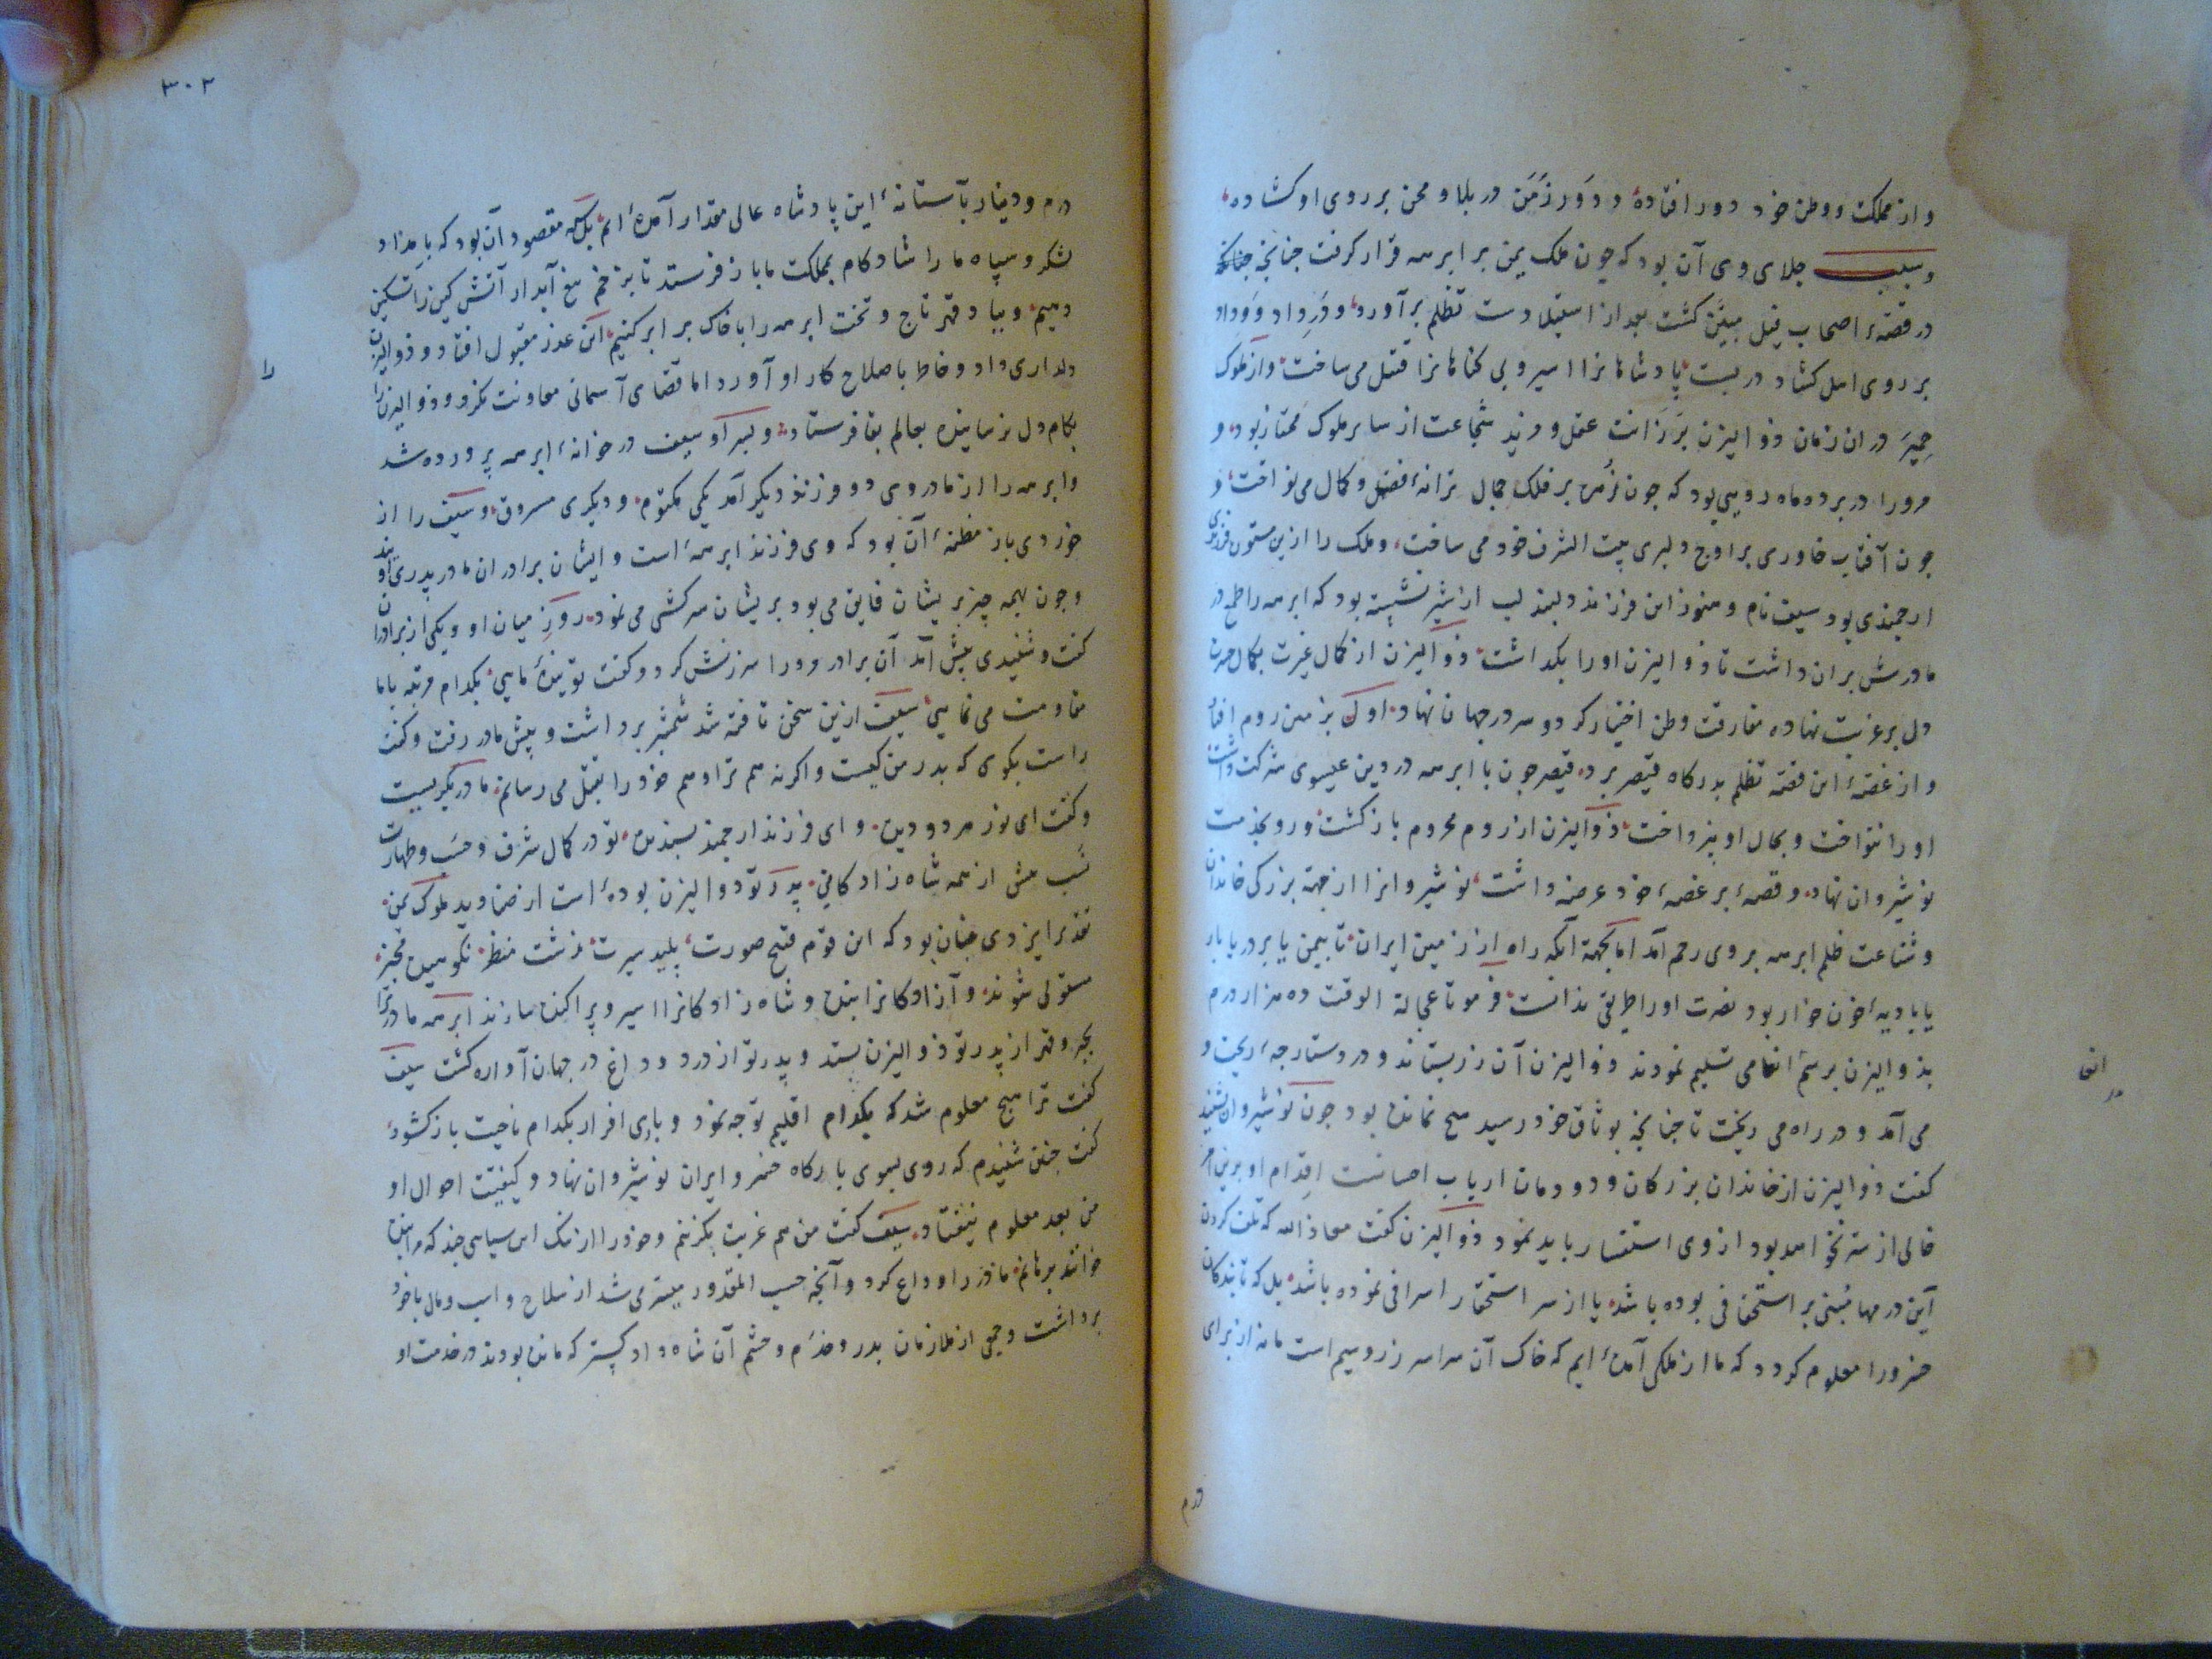 و از مملکت و وطن خود دور افتادهٔ و دَورِ زَمَن در بلا و محن بر روی او کشاده
و سبب جلای وی آن بود که چون ملک یمن بر ابرهه قرار کرفت چنانچه
در قصهٔ اصحاب فیل مبیّن کشت بعد از استیلا دست تظلم برآورد و دَرِ داد و وداد
بر روی اهل کشاد در بست پادشاهانرا اسیر و بی کناهانرا قتیل می ساخت و از ملوک
حِمیَر در ان زمان ذوالیزن برَزانت عقل و مزید شجاعت از سایر ملوک ممتاز بود و
مرو را در پرده ماه رویی بود که چون زُهره بر فلک جمال ترانهٔ فضل و کمال می نواخت و
چون آفتاب خاوری بر اوج دلبری بیت الشرف خود می ساخت و ملک را ازین ستون فرزندی
ارجمندی بود سیف نام و هنوز این فرزند دلبند لب از شیر نشسته بود که ابرهه را طمع در
مادرش بران داشت تا ذوالیزن او را بکداشت ذوالیزن از کمال غیرت بکمال حیرت
دل بر غربت نهاده مفارقت وطن اختیار کرد و سر در جهان نهاد اول بزمین روم افتاد
و از غصهٔ این قصه تظلم بدرکاه قیصر برد قیصر چون با ابرهه در دین عیسوی شرکت داشت
او را ننواخت و بحال او نپرداخت ذوالیزن از روم محروم باز کشت و رو بخدمت
نوشیروان نهاد و قصهٔ بر غصهٔ خود عرضه داشت نوشیروانرا از جهة بزرکی خاندان
و شناعت ظلم ابرهه بر وی رحم آمد اما بجهة آنکه راه از زمین ایران تا بیمن یا بر دریا بار
یا بادیهٔ خون خوار بود نصرت او را طریقی ندانست فرمود تا عجالة الوقت ده هزار درم
بذوالیزن برسم انعامی تسلیم نمودند ذوالیزن آن زر بستاند و در دستارچهٔ ریخت و
می آمد و در راه می ریخت تا چنانچه بوثاق خود رسید هیچ نمانده بود چون نوشیروان بشنید
کفت ذوالیزن از خاندان بزرکان و دودمان ارباب احسانست اقدام او برین امر
خالی از سرّی نخواهد بود از وی استفسار باید نمود ذوالیزن کفت معاذ الله که تلف کردن
این درمها مبنی بر استخفافی بوده باشد یا از سر استحقار اسرافی نموده باشد بل که تا بندکان
خسرو را معلوم کردد که ما از ملکی آمدهٔ ایم که خاک آن سراسر زر و سیم است ما نه از برای
در
درم
۳۰۲
درم و دینار بآستانهٔ این پادشاه عالی مقدار آمدهٔ ایم بل که مقصود آن بود که بامداد
لشکر و سپاه ما را شاد کام بمملکت ما باز فرستد تا بزخم تیغ آبدار آتش کین را تسکین
دهیم و بباد قهر تاج و تخت ابرهه را با خاک برابر کنیم این عذر مقبول افتاد و ذوالیزن
دلداری داد و خاطر باصلاح کار او آورد اما قضای آسمانی معاونت نکرد و ذوالیزن را
بکام دل نرسانیده بعالم بقا فرستاد و پسر او سیف در خوانهٔ ابرهه پرورده شد
و ابرهه را از مادر وی دو فرزند دیکر آمد یکی مکتوم و دیکری مسروق و سیف را از
خوردی باز مظنهٔ آن بود که وی فرزند ابرههٔ است و ایشان برادران مادر پدری اویند
و چون بهمه چیز بریشان فایق می بود بریشان سرکشی می نمود روزی میان او و یکی از برادران
کفت و شنیدی پیش آمد آن برادر مرو را سرزنش کرد و کفت تو بندهٔ مایی بکدام مرتبه با ما
مقاومت می نمایی سیف ازین سخن تافته شد شمشیر برداشت و پیش مادر رفت و کفت
راست بکوی که پدر من کیست و اکر نه هم ترا و هم خود را بقتل می رسانم مادر بکریست
و کفت ای نور مردو دیده و ای فرزند ارجمند پسندیده تو در کمال شرف و حسب و طهارت
نسب بیش از همه شاه زادکانی پدر تو ذوالیزن بودهٔ است از صنادید ملوک یمن
تقدیر ایزدی چنان بود که این قوم قبیح صورت پلید سیرت زشت منظر نکوهیده مخبر
مستولی شوند و آزادکانرا بنده و شاه زادکانرا اسیر و پراکنده سازند ابرهه مادر ترا
بجبر و قهر از پدر تو ذوالیزن بستد و پدر تو از درد و داغ در جهان آواره کشت سیف
کفت ترا هیچ معلوم شد که بکدام اقلیم توجه نمود و بارِی افرار بکدام ناحیت باز کشود
کفت چنین شنیدم که روی بسوی بارکاه خسرو ایران نوشیروان نهاد و کیفیت احوال او
من بعد معلوم نیفتاد سیف کفت من هم غربت بکزینم و خود را از ننک این سیاهی چند که مرا بنده
خوانند برهانم مادر را وداع کرد و آنچه حسب المقدور میسر می شد از سلاح و اسب و مال با خود
برداشت و جمعی از ملازمان پدر و خدَم و حشم آن شاه داد کستر که مانده بودند در خدمت او
را